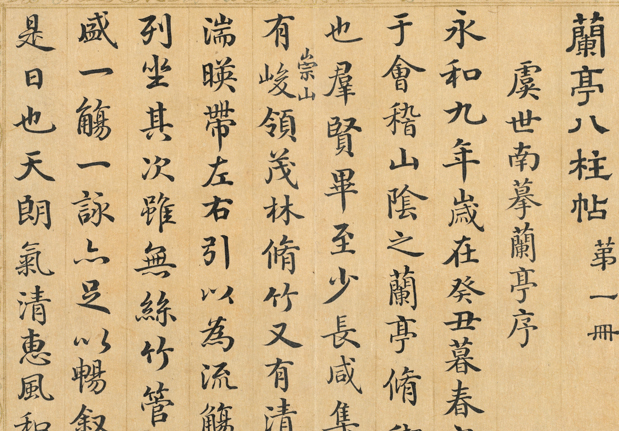 蘭亭八柱帖 第一冊
虞世南摹蘭亭序
永和九年歲在癸丑暮春
于會稽山陰之蘭亭脩
也羣賢畢至少長咸集
有崇山峻領茂林脩竹又有清
湍暎帶左右引以為流觴
列坐其次雖無絲竹管
盛一觴一詠亦足以暢敘
是日也天朗氣清惠風和